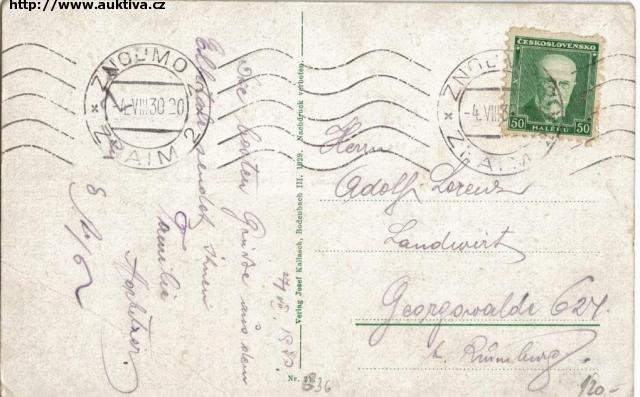 http://www.auktiva.cz
ZNOJMO 2
-4.VIII.30 20
ZNAIM 2
ZNOJMO
-4.VIII.30
ZNAIM
ČESKOSLOVENSKO
50 HALÉŘŮ 50
Die besten Grüße aus dem
sendet Ihnen
Familie
Verlag Josef Kallasch, Bodenbach III. 1929. Nachdruck verboten.
Nr.
Herrn
Adolf Lorenz
Landwirt
Georgswalde 627.
b. Rumburg
636
120.-